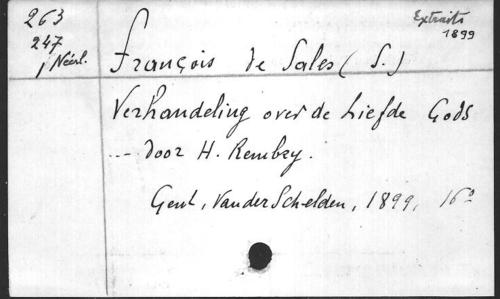 263
247
Néerl.
Extraits
1899
François de Sales (S.)
Verhandeling over de Liefde Gods
... door H. Rembry.
Gent, Van der Schelden, 1899, 16°